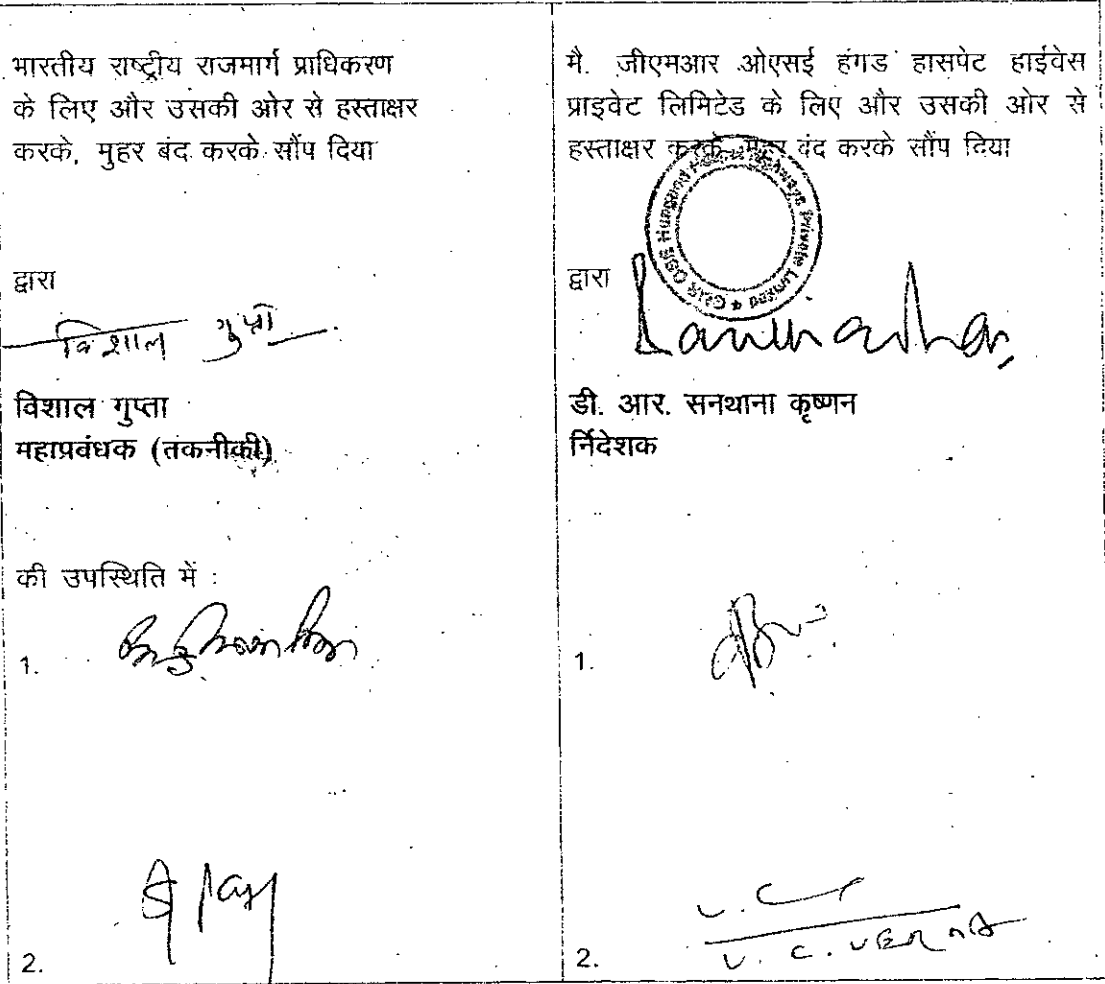 भारतीय राष्ट्रीय राजमार्ग प्राधिकरण
के लिए और उसकी ओर से हस्ताक्षर
करके, मुहर बंद करके सौंप दिया
द्वारा
विशाल गुप्ता
विशाल गुप्ता
महाप्रबंधक (तकनीकी)
की उपस्थिति में :
1.
2.
मै. जीएमआर ओएसई हंगड हासपेट हाईवेस
प्राइवेट लिमिटेड के लिए और उसकी ओर से
हस्ताक्षर करके, मुहर बंद करके सौंप दिया
GMR OSE Hungund Highways Private Limited
द्वारा
डी. आर. सनथाना कृष्णन
र्निदेशक
1.
2.
V. C. VERMA